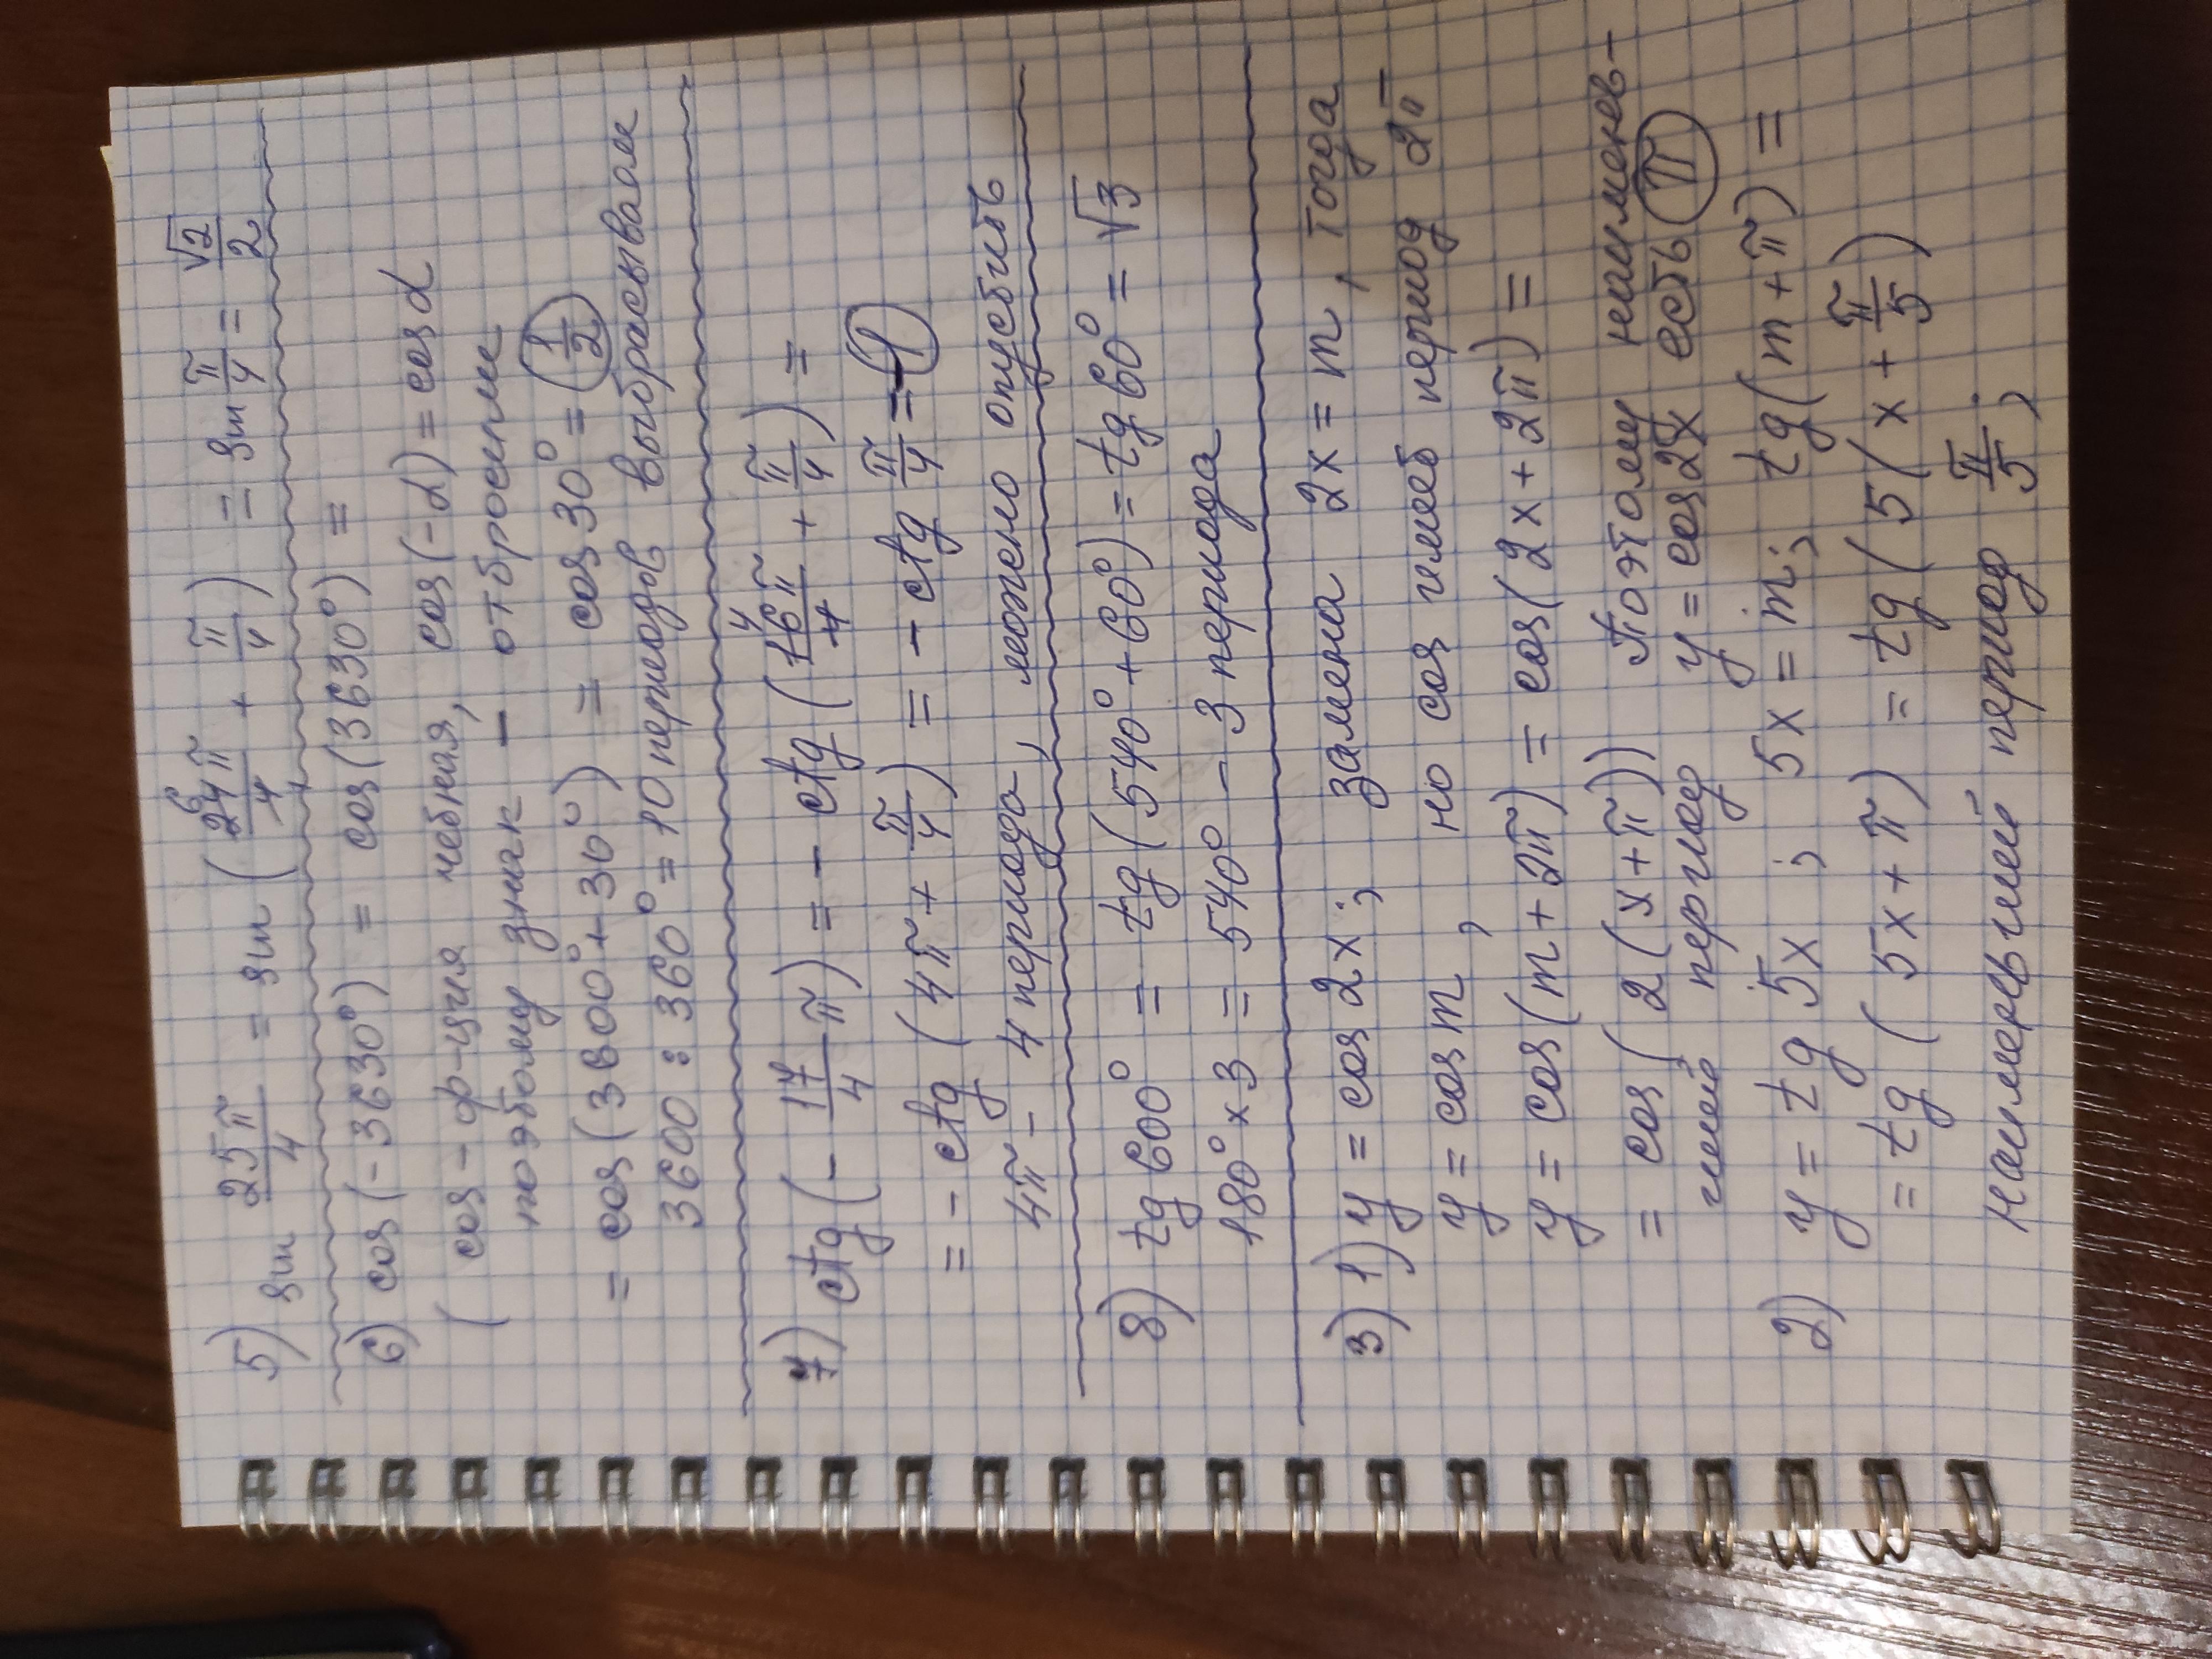 5) sin 25π/4 = sin (24π/4 + π/4) = sin π/4 = √2/2
6) cos (-3630°) = cos (3630°) =
( cos - ф-ция чётная, cos (-α) = cos α
поэтому знак — отбросили
= cos (3600° + 30°) = cos 30° = 1/2
3600 : 360° = 10 периодов выбрасываем
7) ctg (- 17/4 π) = - ctg (16π/4 + π/4) =
= - ctg (4π + π/4) = - ctg π/4 = -1
4π - 4 периода, можно опустить
8) tg 600° = tg (540° + 60°) = tg 60° = √3
180° × 3 = 540° - 3 периода
3) 1) y = cos 2x ; замена 2x = m , тогда
y = cos m , но cos имеет период 2π
y = cos (m + 2π) = cos (2x + 2π) =
= cos ( 2 (x + π)) Поэтому наименьший
период y = cos 2x есть π
2) y = tg 5x ; 5x = m ; tg (m + π) =
= tg ( 5x + π) = tg ( 5 (x + π/5)
наименьший период π/5 ;